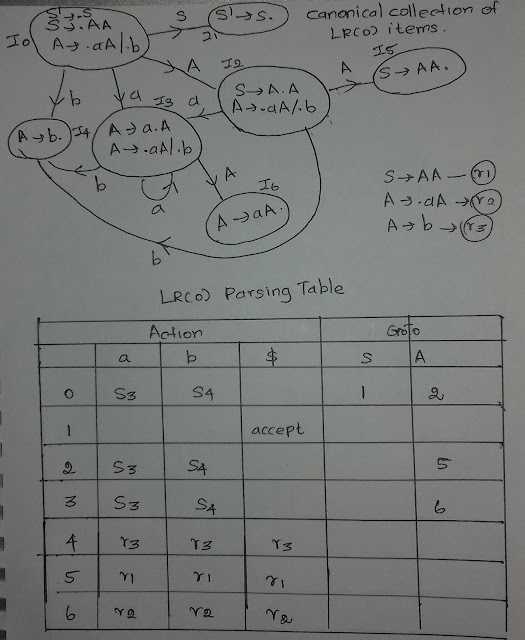 S' → .S
S → .AA
A → .aA/.b
I0
S
S' → S.
I1
Canonical collection of
LR(0) items.
A
I2
S → A.A
A → .aA/.b
A
I5
S → AA.
b
a
a
A → b.
I4
I3
A → a.A
A → .aA/.b
b
a
A
I6
A → aA.
b
S → AA — r1
A → .aA → r2
A → b → r3
LR(0) Parsing Table
Action Goto
a b $ S A
0 S3 S4 1 2
1 accept
2 S3 S4 5
3 S3 S4 6
4 r3 r3 r3
5 r1 r1 r1
6 r2 r2 r2